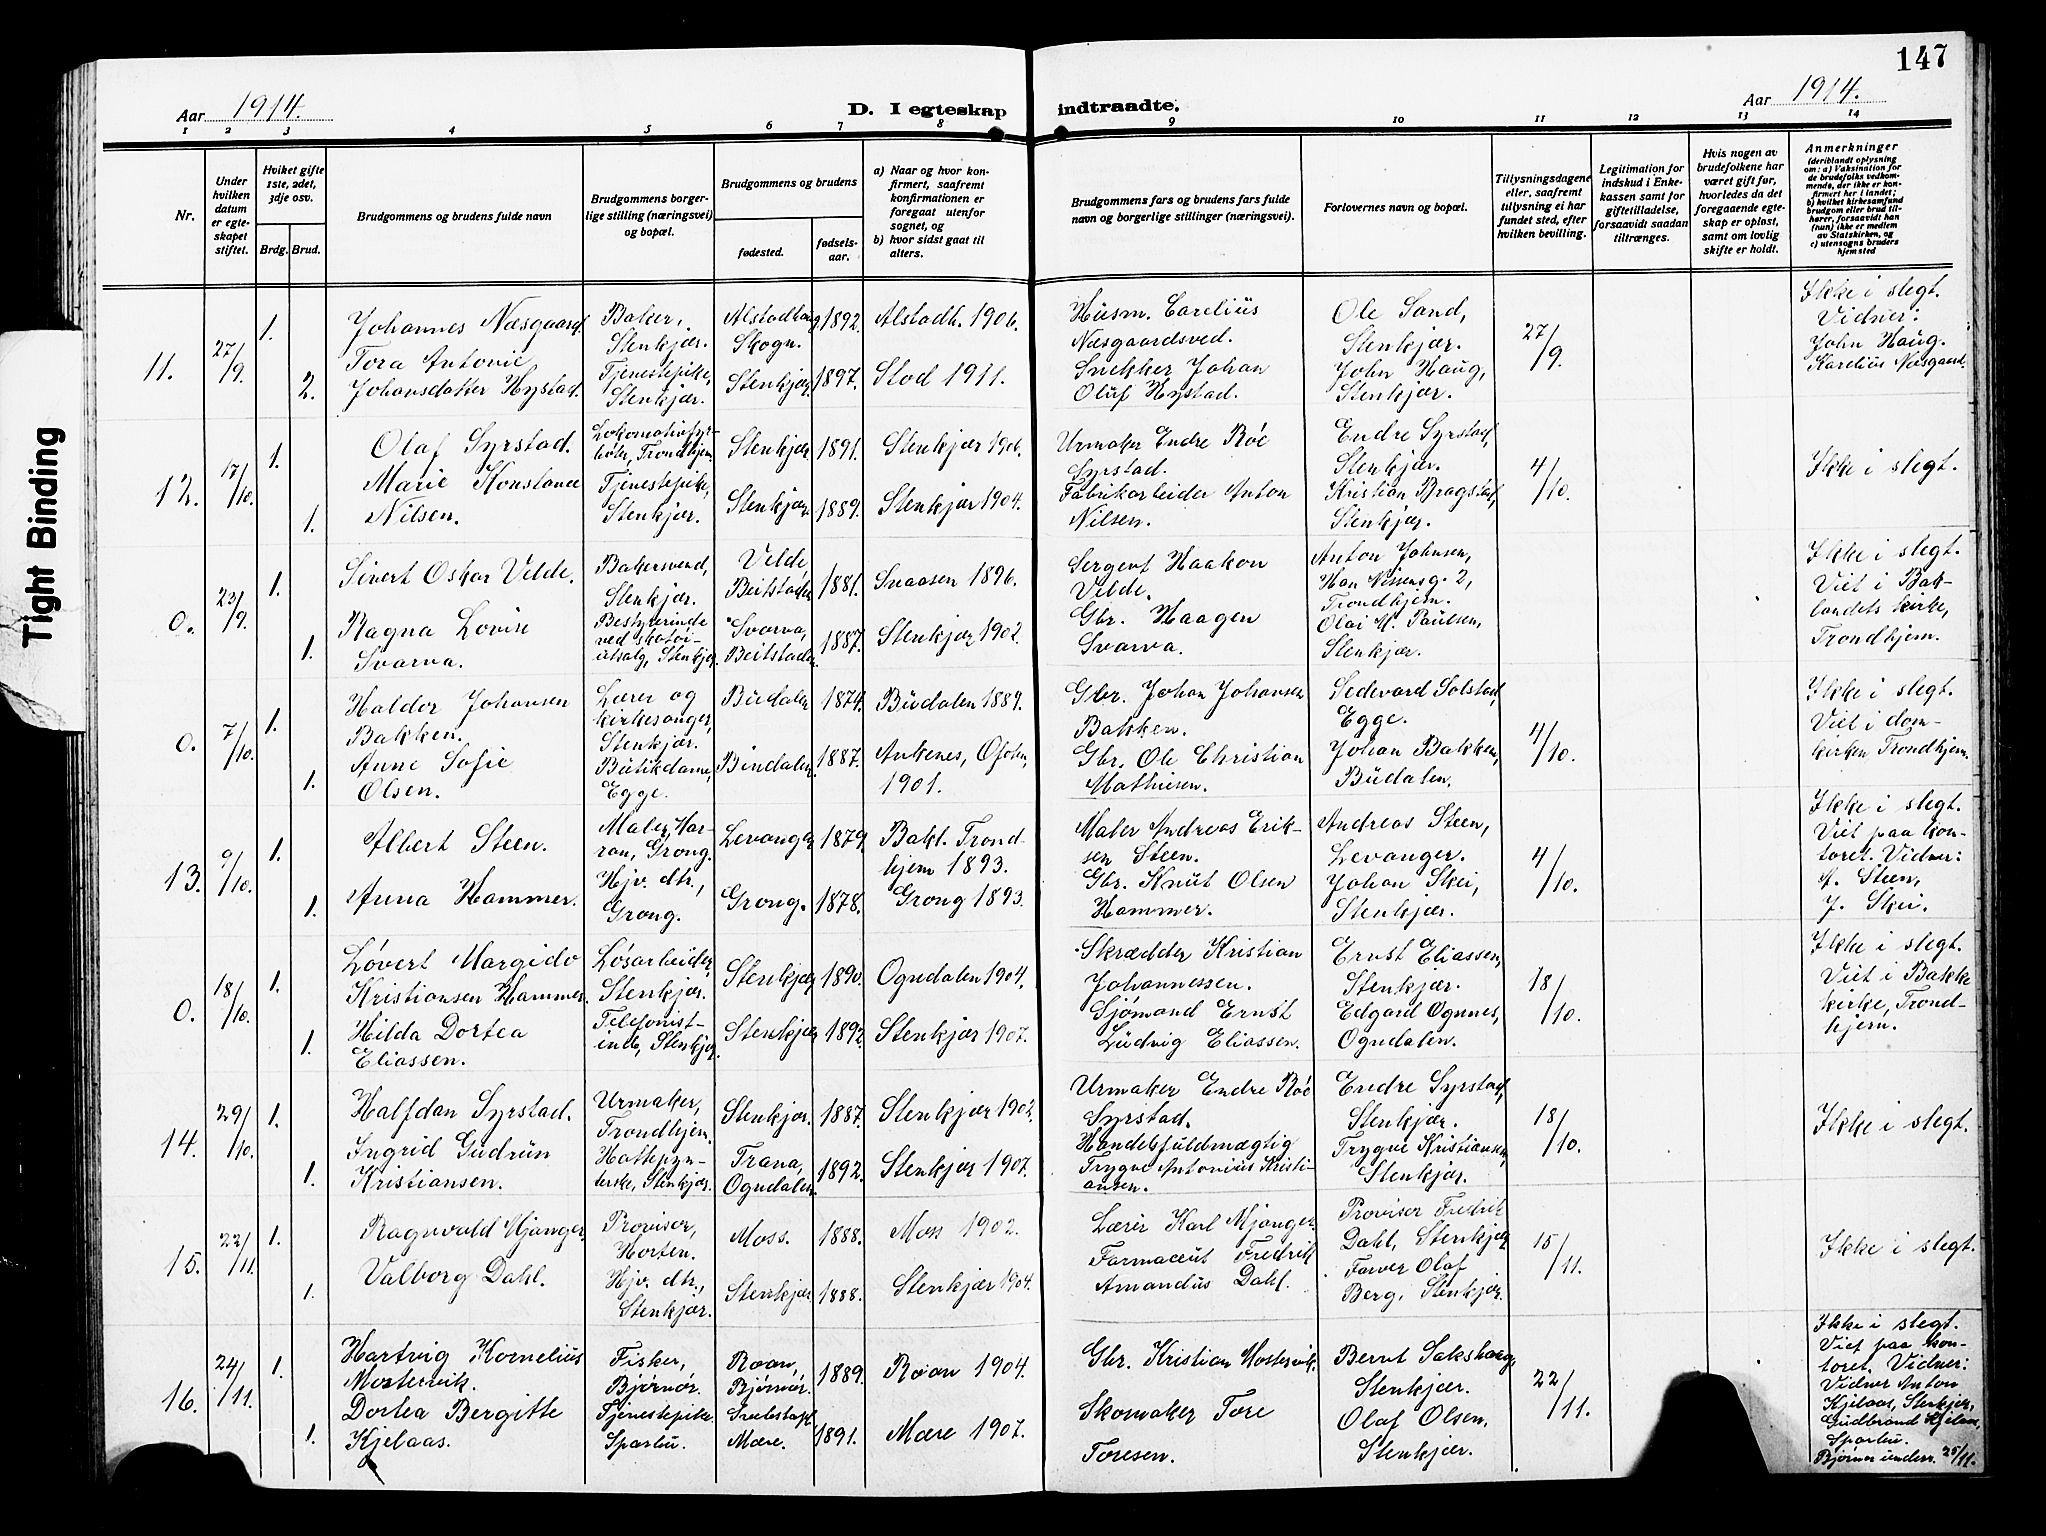 147
Aar 1914.
D. I egteskap indtraadte.
Aar 1914.
1 2 3 4 5 6 7 8 9 10 11 12 13 14
Nr.
Under hvilken datum er egteskapet stiftet.
Hviket gifte 1ste, 2det, 3dje osv.
Brdg. Brud.
Brudgommens og brudens fulde navn
Brudgommens borgerlige stilling (næringsvei) og bopæl.
Brudgommens og brudens
fødested.
fødselsaar.
a) Naar og hvor konfirmert, saafremt konfirmationen er foregaat utenfor sognet, og
b) hvor sidst gaat til alters.
Brudgommens fars og brudens fars fulde navn og borgerlige stillinger (næringsvei).
Forlovernes navn og bopæl.
Tillysningsdagene eller, saafremt tillysning ei har fundet sted, efter hvilken bevilling.
Legitimation for indskud i Enkekassen samt for giftetilladelse, forsaavidt saadan tiltrænges.
Hvis nogen av brudefolkene har været gift før, hvorledes da det foregaaende egteskap er opløst, samt om lovlig skifte er holdt.
Anmerkninger
(deriblandt oplysning om: a) Vaksination for de brudefolks vedkommende, der ikke er konfirmert her i landet; b) hvilket kirkesamfund brudgom eller brud tilhører, forsaavidt han (hun) ikke er medlem av Statskirken, og c) utensogns bruders hjemsted
11. 27/9. 1. Johannes Næsgaard. Baker, Stenkjær. Alstadhaug Skogn. 1892. Alstadh. 1906. Husm. Carelius Næsgaardsved. Ole Sand, Stenkjær. 27/9. Ikke i slegt. Vidner: John Haug. Karelius Næsgaard.
2. Tora Antonie Johansdatter Hystad. Tjenestepike, Stenkjær. Stenkjær 1897. Stod 1911. Snekker Johan Oluf Hystad. John Haug, Stenkjær.
12. 17/10. 1. Olaf Syrstad. Lokomotivfyrbøter, Trondhjem. Stenkjær 1891. Stenkjær 1906. Urmaker Endre Roe Syrstad. Endre Syrstad, Stenkjær. 4/10. Ikke i slegt.
1. Marie Konstance Nilsen. Tjenestepike, Stenkjær. Stenkjær 1889. Stenkjær 1904. Fabrikarbeider Anton Nilsen. Kristian Bragstad, Stenkjær.
0. 23/9. 1. Sivert Oskar Velde. Bakersvend, Stenkjær. Velde Beitstaden 1881. Snaasen 1896. Sergent Haakon Velde. Anton Johnsen, Han Nissensg. 2, Trondhjem. Ikke i slegt. Viet i Baklandets kirke, Trondhjem.
1. Ragna Lovise Svarva. Bestyrerinde ved skotøiutsalg, Stenkjær. Svarva, Beitstaden 1887. Stenkjær 1902. Gbr. Haagen Svarva. Olai M. Paulsen, Stenkjær.
0. 7/10. 1. Haldor Johansen Bakken. Lærer og kirkesanger, Stenkjær. Budalen 1874. Budalen 1889. Gbr. Johan Johansen Bakken. Sedevard Solstad, Egge. 4/10. Ikke i slegt. Viet i domkirken Trondhjem.
1. Anne Sofie Olsen. Butikdame, Egge. Bindalen 1887. Ankenes, Ofoten, 1901. Gbr. Ole Christian Mathisen. Johan Bakken, Budalen.
13. 9/10. 1. Albert Steen. Maler, Harran, Grong. Levanger 1879. Bakl. Trondhjem 1893. Maler Andreas Eriksen Steen. Andreas Steen, Levanger. 4/10. Ikke i slegt. Viet paa kontoret. Vidner: A. Steen, J. Skei.
1. Anna Hammer. Hjv. dtr., Grong. Grong. 1878. Grong 1893. Gbr. Knut Olsen Hammer. Johan Skei, Stenkjær.
0. 18/10. 1. Løvert Margido Kristiansen Hammer. Løsarbeider, Stenkjær. Stenkjær 1890. Ogndalen 1904. Skrædder Kristian Johannessen. Ernst Eliassen, Stenkjær. 18/10. Ikke i slegt. Viet i Bakke kirke, Trondhjem.
1. Hilda Dortea Eliassen. Telefonistinde, Stenkjær. Stenkjær 1892. Stenkjær 1907. Sjømand Ernst Ludvig Eliassen. Edgard Ognnes, Ogndalen.
14. 29/10. 1. Halfdan Syrstad. Urmaker, Trondhjem. Stenkjær. 1887. Stenkjær 1902. Urmaker Endre Roe Syrstad. Endre Syrstad, Stenkjær. 18/10. Ikke i slegt.
1. Ingrid Gudrun Kristiansen. Hattepynterske, Stenkjær. Trana, Ogndalen. 1892. Stenkjær 1907. Handelsfuldmægtig Trygve Antonius Kristiansen. Trygve Kristiansen, Stenkjær.
15. 22/11. 1. Ragnvald Mjanger. Provisor, Horten. Moss. 1888. Moss 1902. Lærer Karl Mjanger. Provisor Fredrik Dahl, Stenkjær 15/11. Ikke i slegt.
1. Valborg Dahl. Hjv. dtr., Stenkjær. Stenkjær 1888. Stenkjær 1904. Farmaceut Fredrik Amandus Dahl. Farver Olaf Berg, Stenkjær.
16. 24/11. 1. Hartvig Kornelius Mostervik. Fisker, Bjørnør. Roan, Bjørnør. 1889. Roan 1904. Gbr. Kristian Mostervik. Bernt Sakshaug, Stenkjær. 22/11. Ikke i slegt. Viet paa kontoret. Vidner: Vidner Anton Kjelaas, Stenkjær, Gudbrand Kjelaas, Sparbu. Bjørnør underr. 25/11.
1. Dortea Bergitte Kjelaas. Tjenestepike. Sparbu. Mære. 1891. Mære 1907. Skomaker Tore Toresen. Olaf Olsen, Stenkjær.
Tight Binding